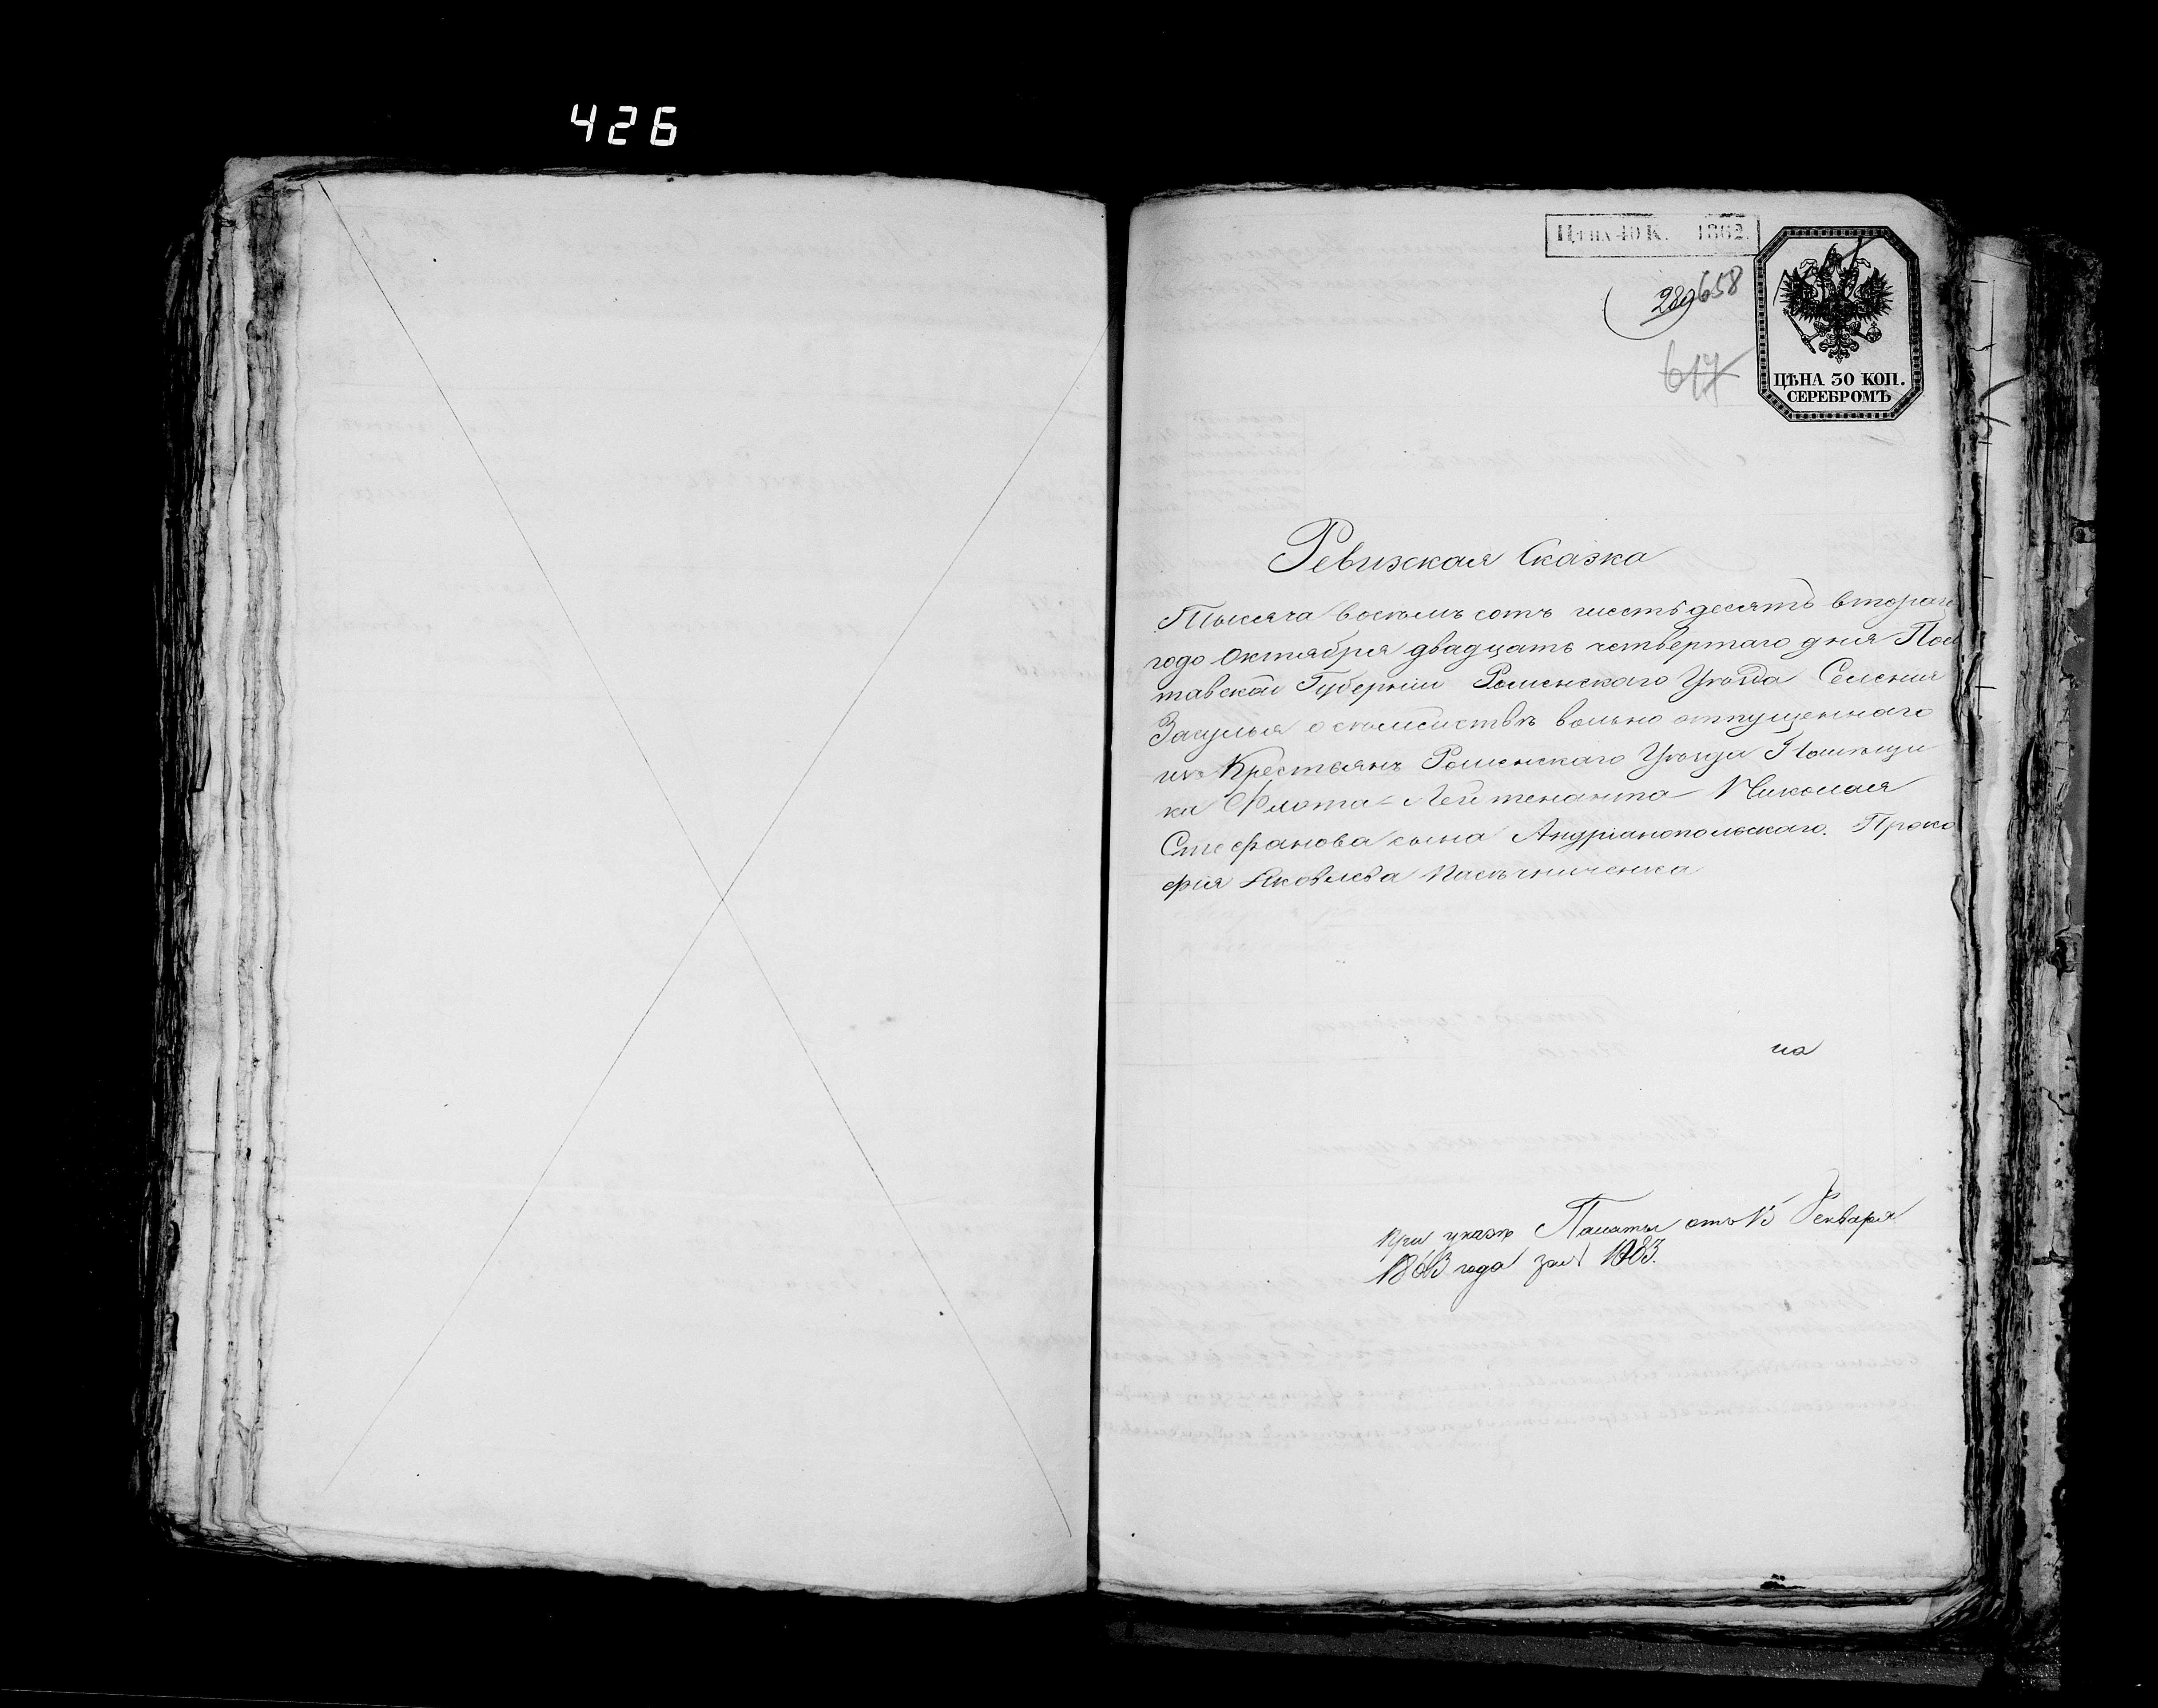 426
Цѣна 40 К. 1862.
289 658
617
ЦѢНА 30 КОП.
СЕРЕБРОМЪ
Ревизская Сказка
Тысяча восемь сотъ шестьдесятъ втораго
года Октября двадцать четвертаго дня Пол
тавской Губерніи Роменскаго Уѣзда Селенія
Засулья о семействѣ вольно отпущеннаго
изъ Крестьянъ Роменскаго Уѣзда Помѣщи
ка Флота-Лейтенанта Николая
Стефанова сына Андріанопольскаго. Проко
фія Яковлева Пасѣчниченка
на
При указѣ Палаты отъ 15 Генваря
1863 года за 1083.